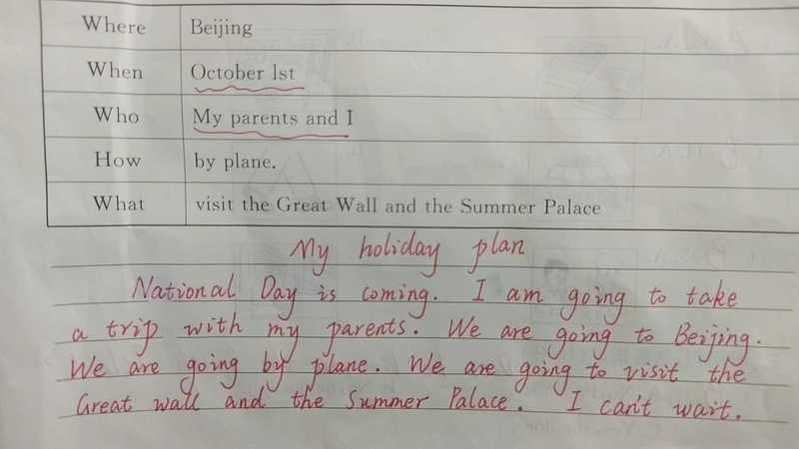 Where Beijing
When October 1st
Who My parents and I
How by plane.
What visit the Great Wall and the Summer Palace
My holiday plan
National Day is coming. I am going to take
a trip with my parents. We are going to Beijing.
We are going by plane. We are going to visit the
Great wall and the Summer Palace. I can't wait.